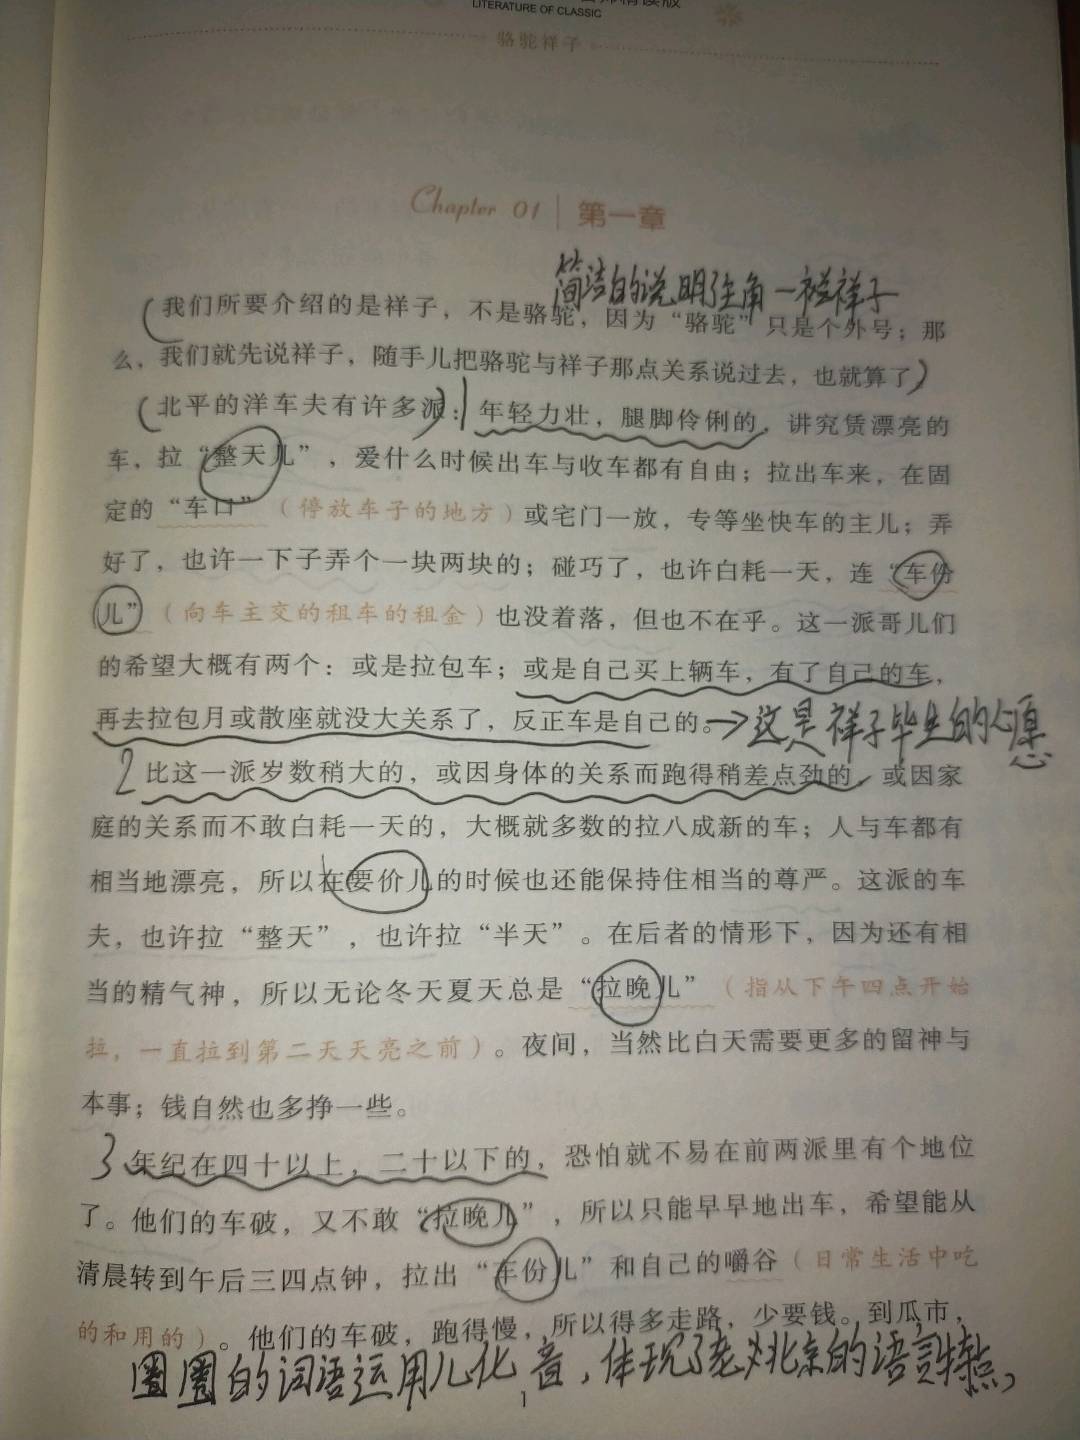 LITERATURE OF CLASSIC
骆驼祥子
Chapter 01 | 第一章
简洁的说明了主角一祥子
我们所要介绍的是祥子，不是骆驼，因为“骆驼”只是个外号；那
么，我们就先说祥子，随手儿把骆驼与祥子那点关系说过去，也就算了
北平的洋车夫有许多派：1年轻力壮，腿脚伶俐的，讲究赁漂亮的
车，拉“整天儿”，爱什么时候出车与收车都有自由；拉出车来，在固
定的“车口”（停放车子的地方）或宅门一放，专等坐快车的主儿；弄
好了，也许一下子弄个一块两块的；碰巧了，也许白耗一天，连“车份
儿”（向车主交的租车的租金）也没着落，但也不在乎。这一派哥儿们
的希望大概有两个：或是拉包车；或是自己买上辆车，有了自己的车，
再去拉包月或散座就没大关系了，反正车是自己的。→这是祥子毕生的心愿
2比这一派岁数稍大的，或因身体的关系而跑得稍差点劲的，或因家
庭的关系而不敢白耗一天的，大概就多数的拉八成新的车；人与车都有
相当地漂亮，所以在要价儿的时候也还能保持住相当的尊严。这派的车
夫，也许拉“整天”，也许拉“半天”。在后者的情形下，因为还有相
当的精气神，所以无论冬天夏天总是“拉晚儿”（指从下午四点开始
拉，一直拉到第二天天亮之前）。夜间，当然比白天需要更多的留神与
本事；钱自然也多挣一些。
3年纪在四十以上，二十以下的，恐怕就不易在前两派里有个地位
了。他们的车破，又不敢“拉晚儿”，所以只能早早地出车，希望能从
清晨转到午后三四点钟，拉出“车份儿”和自己的嚼谷（日常生活中吃
的和用的）。他们的车破，跑得慢，所以得多走路，少要钱。到瓜市，
圈圈的词语运用儿化音，体现了老北京的语言特点，
1